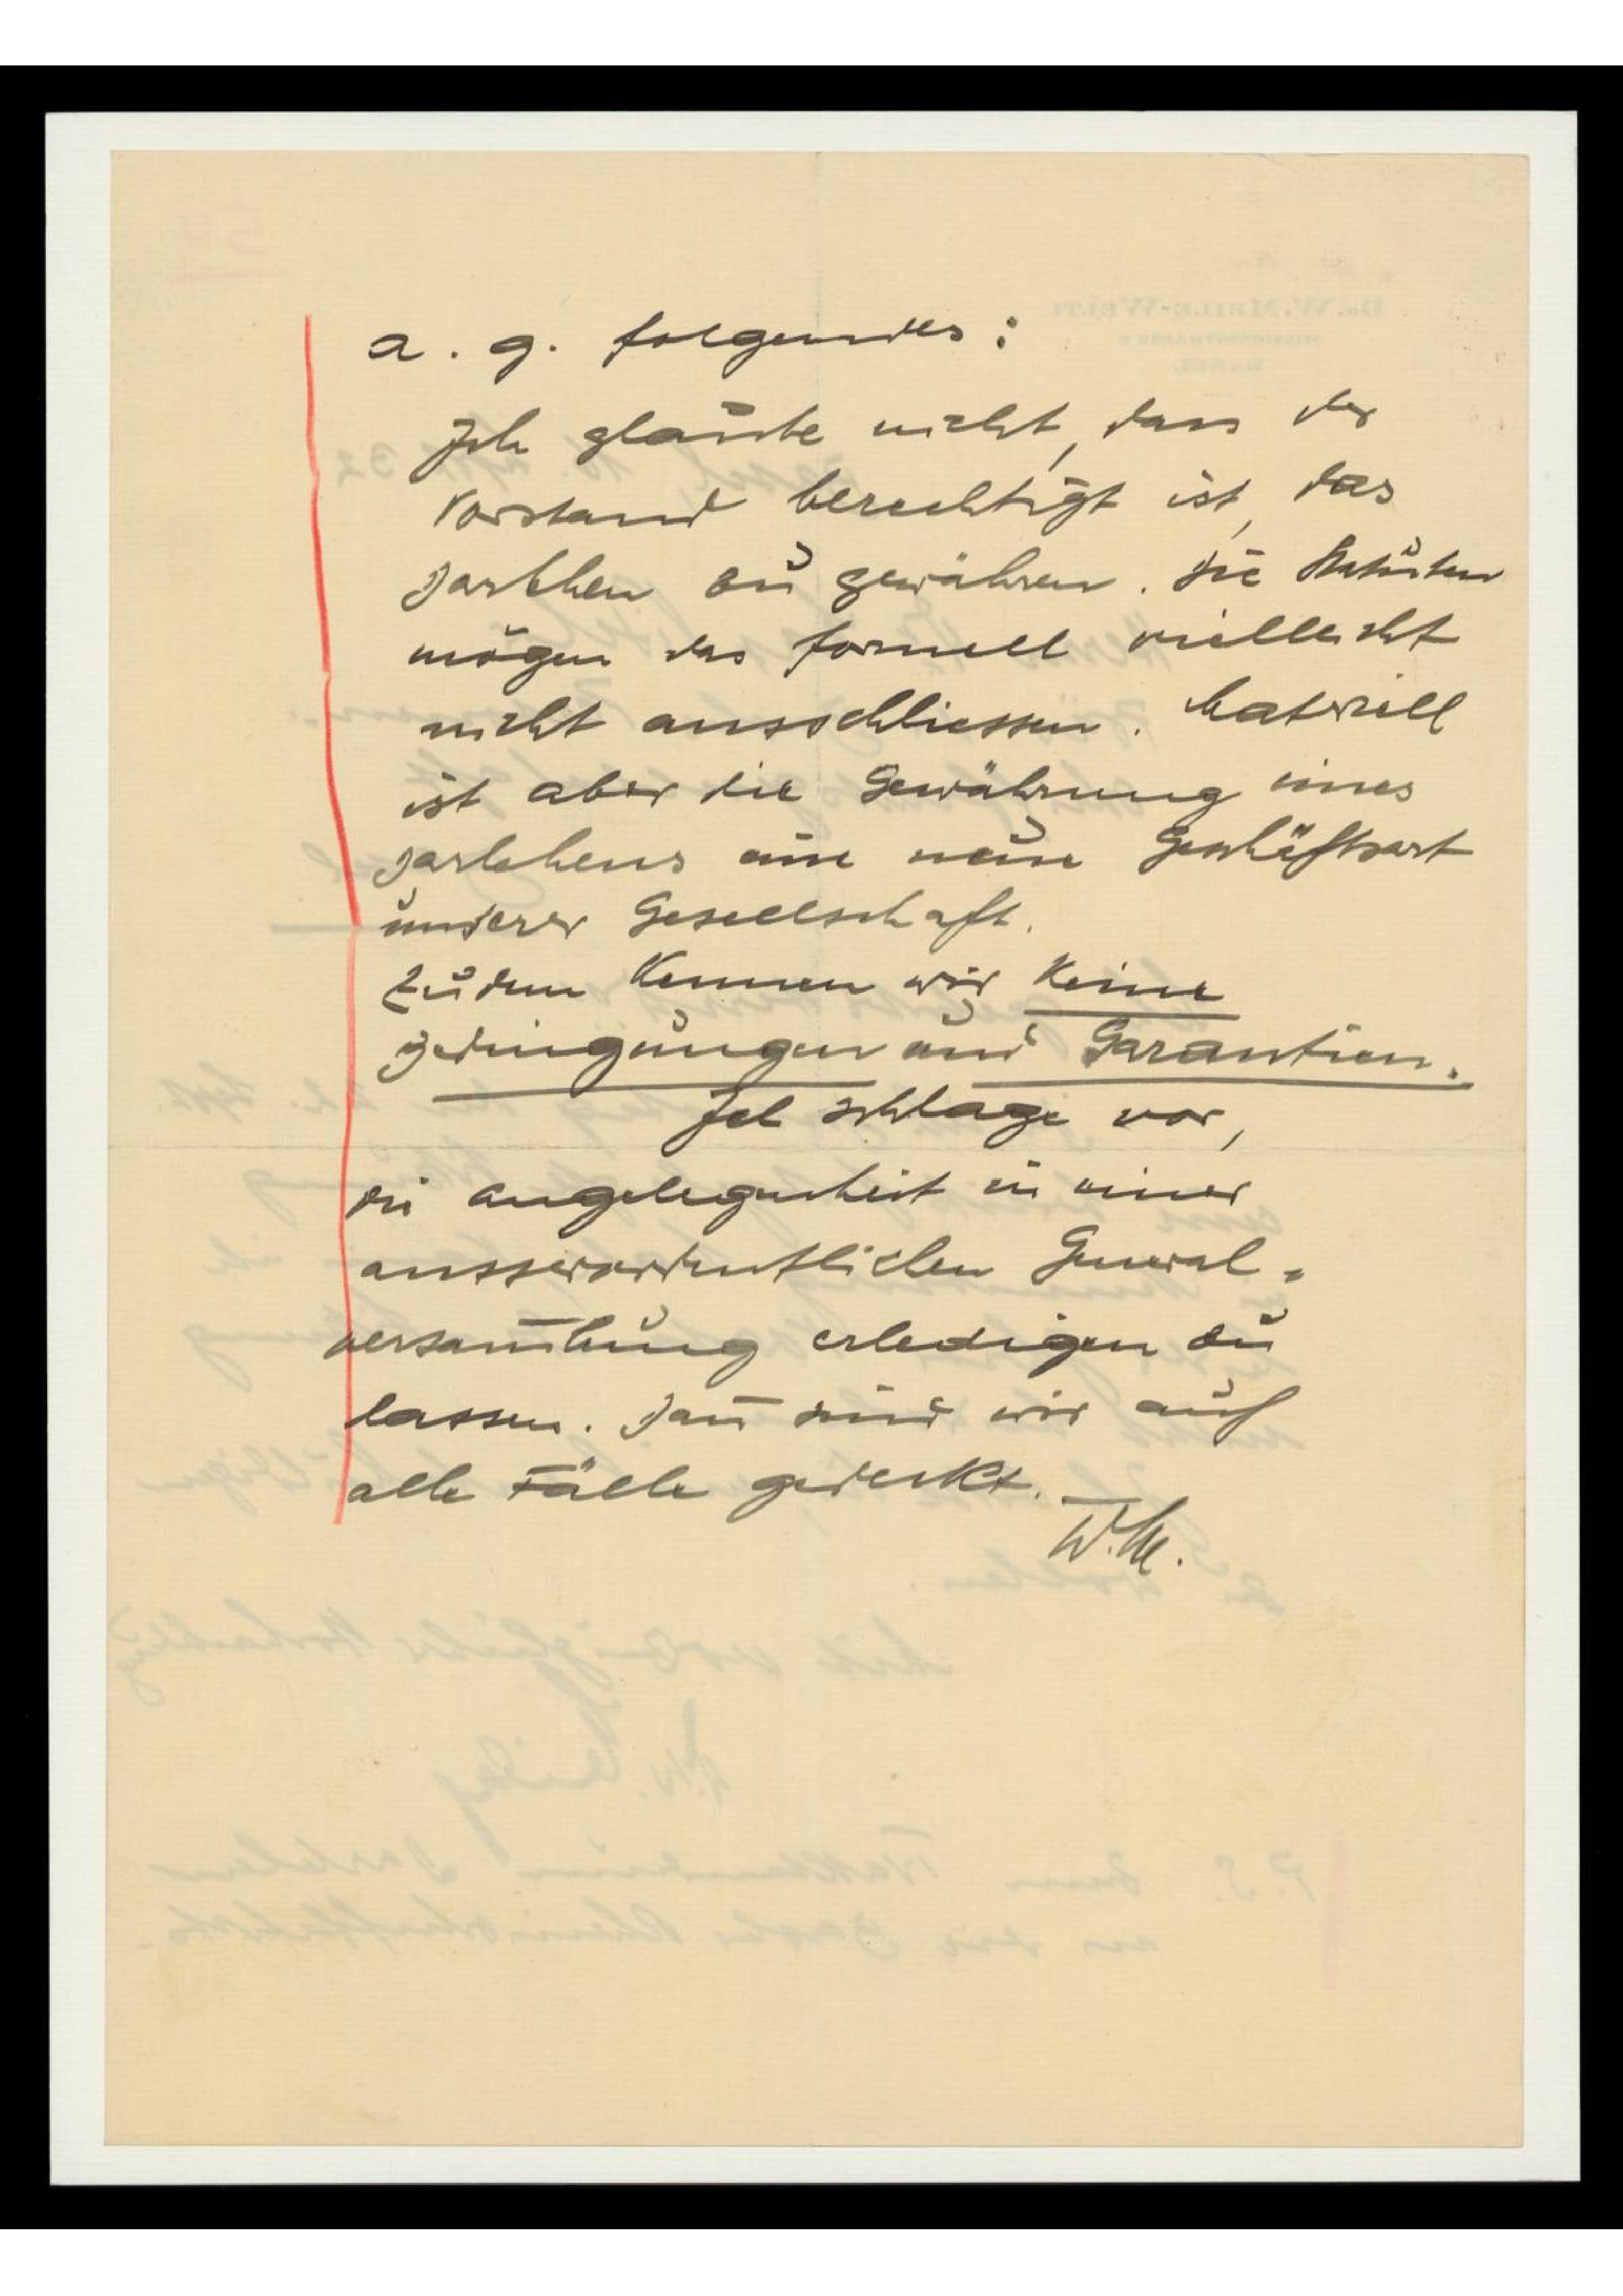 a. g. folgendes:
Ich glaube nicht, dass der
Vorstand berechtigt ist, das
Darlehen zu gewähren. Die Statuten
mögen das formell vielleicht
nicht ausschliessen. Materiell
ist aber die Gewährung eines
Darlehens eine neue Geschäftsart
unserer Gesellschaft.
Zudem kennen wir keine
Bedingungen und Garantien.
Ich schlage vor,
die Angelegenheit in einer
ausserordentlichen General-
versam̅lung erledigen zu
lassen. Dan̅ sind wir auf
alle Fälle gedeckt.
W. M.